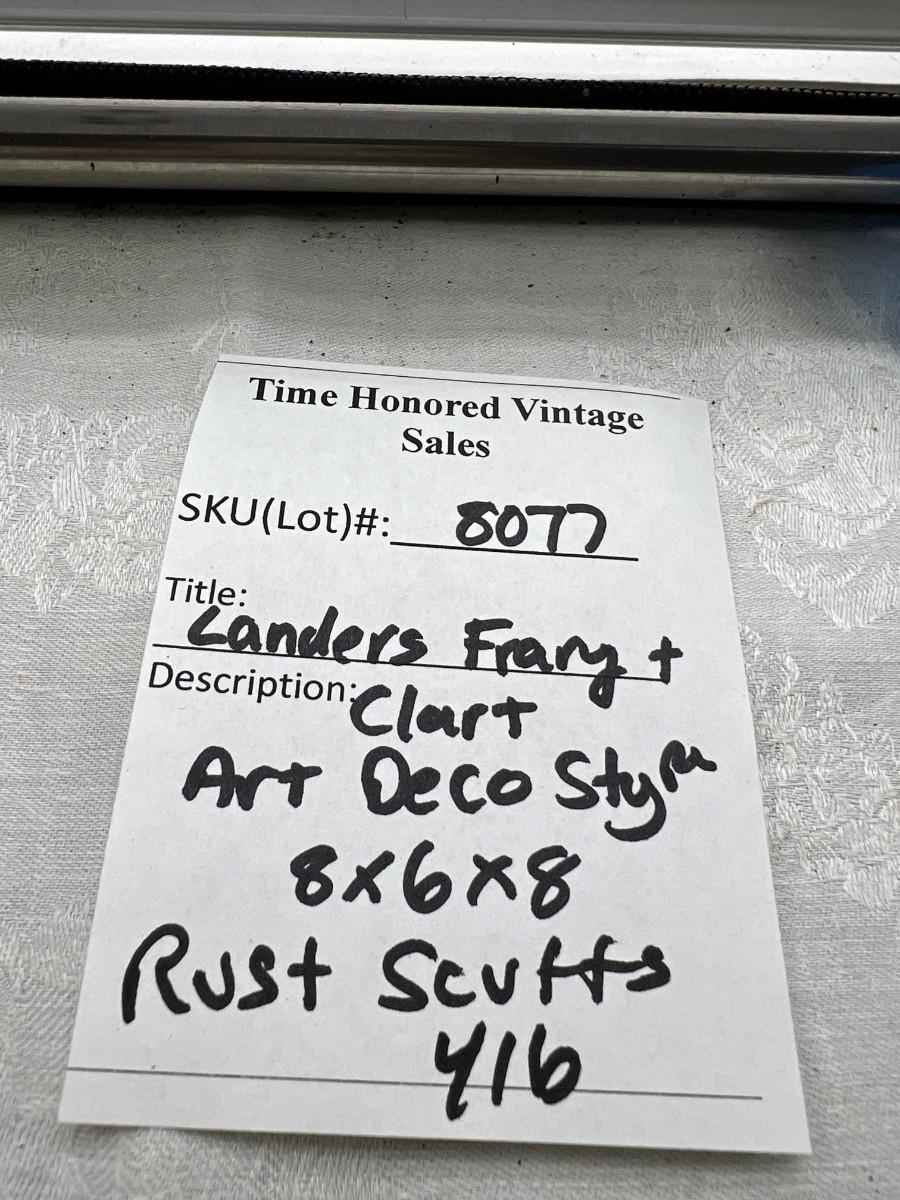 Time Honored Vintage
Sales
SKU(Lot)#: 8077
Title:
Landers Frary +
Description: Clart
Art Deco Style
8x6x8
Rust Scuffs
416